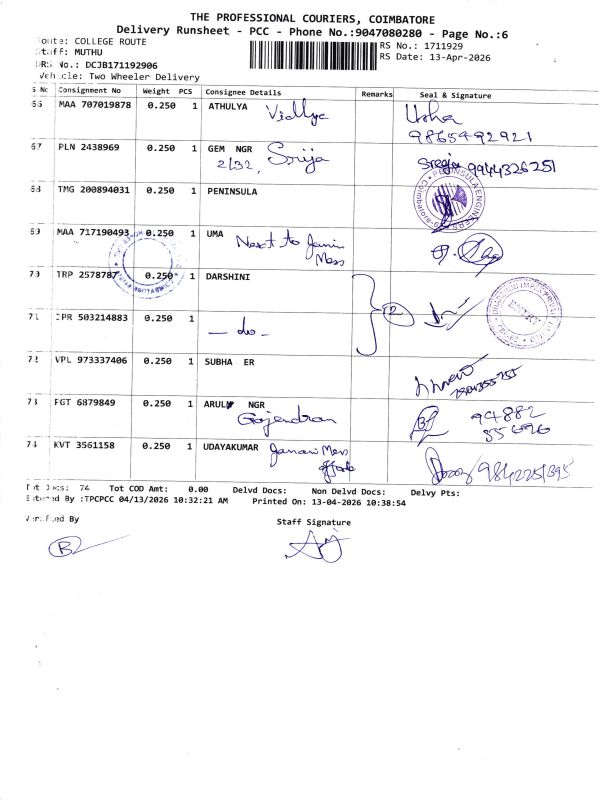 THE PROFESSIONAL COURIERS, COIMBATORE
Delivery Runsheet - PCC - Phone No.:9047080280 - Page No.:6
Route: COLLEGE ROUTE
RS No.: 1711929
Staff: MUTHU
RS Date: 13-Apr-2026
DRS No.: DCJB171192906
Vehicle: Two Wheeler Delivery
S No Consignment No Weight PCS Consignee Details Remarks Seal & Signature
66 MAA 707019878 0.250 1 ATHULYA Vidhya Usha
9865492921
67 PLN 2438969 0.250 1 GEM NGR Srija Sreeja 9944326251
2/32,
68 TMG 200894031 0.250 1 PENINSULA
PENINSULA ENGINEERS
69 MAA 717190493 0.250 1 UMA Next to Janani
Mess
70 TRP 2578787 0.250 1 DARSHINI 2
71 JPR 503214883 0.250 1 - do -
72 VPL 973337406 0.250 1 SUBHA ER
73 FGT 6879849 0.250 1 ARUL NGR 94882
Gajendran 55696
74 KVT 3561158 0.250 1 UDAYAKUMAR Janani Mess 9842251395
Tot Docs: 74 Tot COD Amt: 0.00 Delvd Docs: Non Delvd Docs: Delvy Pts:
Entered By :TPCPCC 04/13/2026 10:32:21 AM Printed On: 13-04-2026 10:38:54
Verified By
Staff Signature